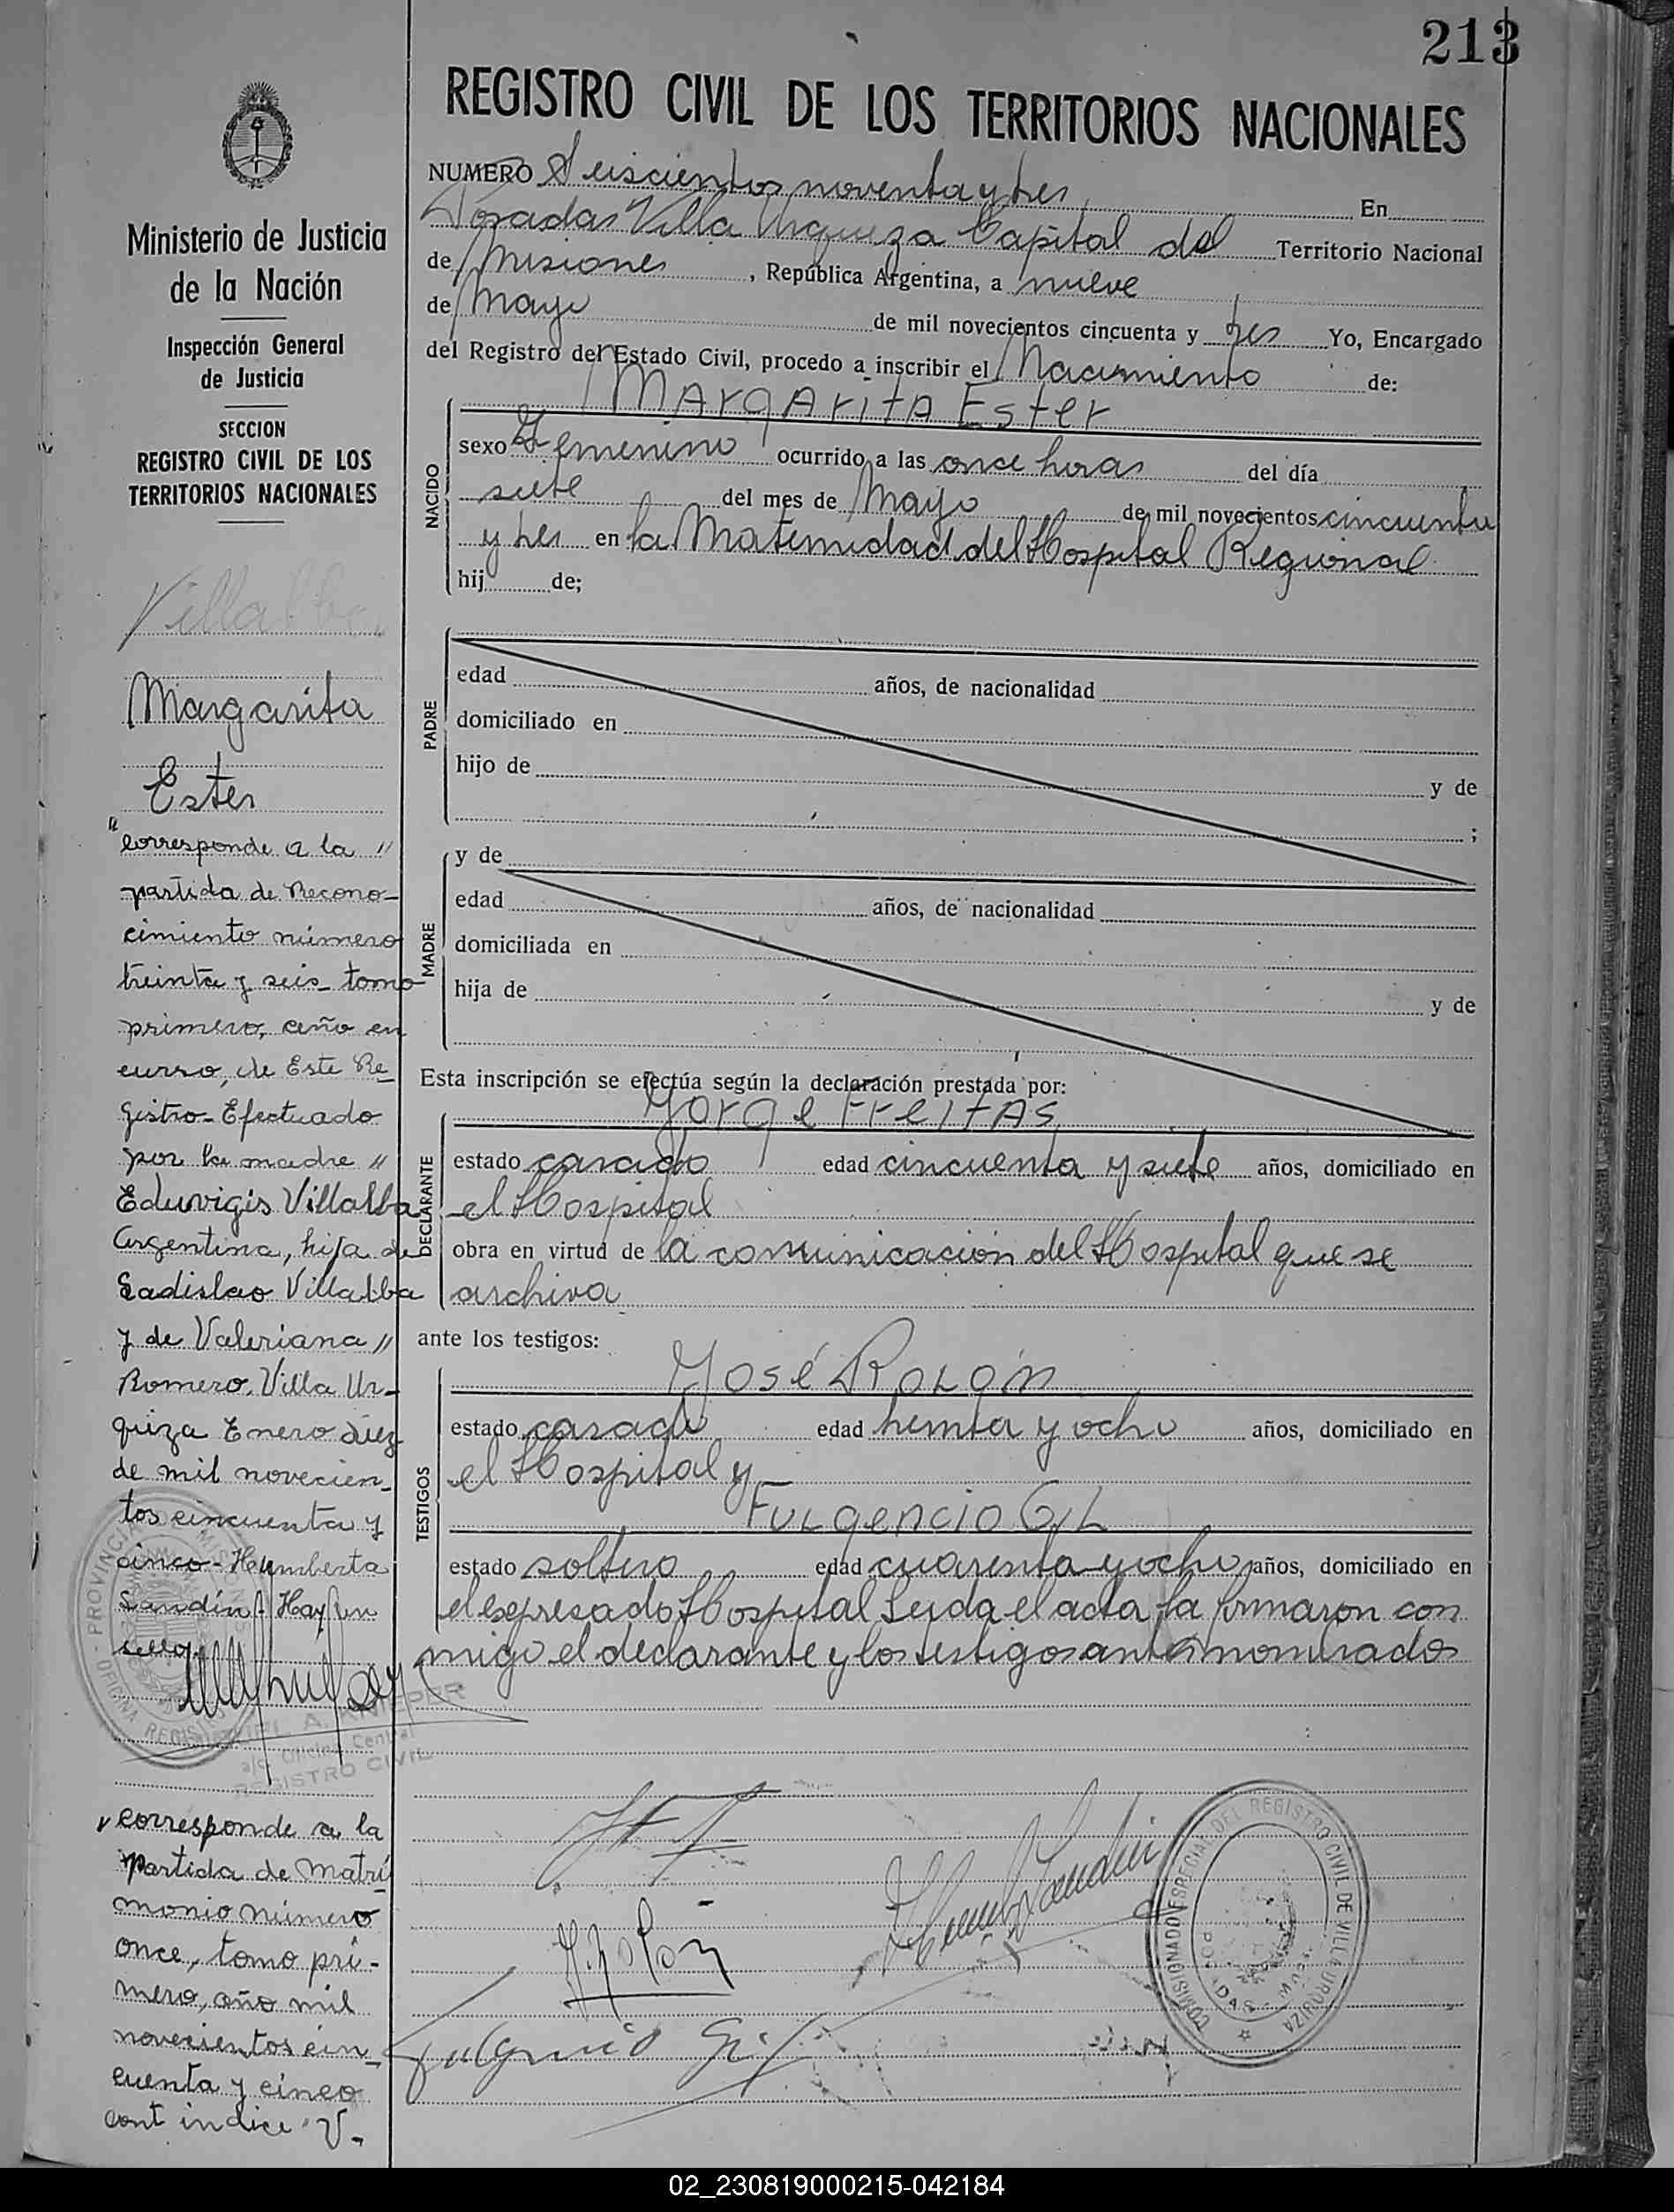 213
REGISTRO CIVIL DE LOS TERRITORIOS NACIONALES
NUMERO Seiscientos noventa y tres En
Posadas Villa Urquiza Capital del Territorio Nacional
de Misiones, República Argentina, a nueve
de Mayo de mil novecientos cincuenta y tres Yo, Encargado
del Registro del Estado Civil, procedo a inscribir el Nacimiento de:
MArgAritA Ester
NACIDO
sexo Femenino ocurrido a las once horas del día
siete del mes de Mayo de mil novecientos cincuenta
y tres en la Maternidad del Hospital Regional
hij de;
PADRE
edad años, de nacionalidad
domiciliado en
hijo de y de
;
MADRE
y de
edad años, de nacionalidad
domiciliada en
hija de y de
Esta inscripción se efectúa según la declaración prestada por:
Jorge FreitAs
DECLARANTE
estado casado edad cincuenta y siete años, domiciliado en
el Hospital
obra en virtud de la comunicación del Hospital que se
archiva
ante los testigos:
José Rolón
TESTIGOS
estado casado edad treinta y ocho años, domiciliado en
el Hospital y
Fulgencio Gil
estado soltero edad cuarenta y ocho años, domiciliado en
el expresado Hospital Leida el acta la firmaron con
migo el declarante y los testigos antes nombrados
J. Rolón
Fulgencio Gil
COMISIONADO ESPECIAL DEL REGISTRO CIVIL DE VILLA URQUIZA
POSADAS
Ministerio de Justicia
de la Nación
Inspección General
de Justicia
SECCION
REGISTRO CIVIL DE LOS
TERRITORIOS NACIONALES
Villalba
Margarita
Ester
"corresponde a la "
partida de Recono-
cimiento número
treinta y seis tomo
primero, año en
curso, de Este Re
gistro- Efectuado
por la madre "
Eduvigis Villalba
Argentina, hija de
Ladislao Villalba
y de Valeriana "
Romero, Villa Ur-
quiza Enero diez
de mil novecien-
tos cincuenta y
cinco- Humberto
Sandin- Hay un
sello
PROVINCIA MISIONES
OFICINA
REGISTRO CIVIL
a/c Oficina Central
corresponde a la
Partida de Matri
monio número
once, tomo pri-
mero, año mil
novecientos cin-
cuenta y cinco
cont indice "V-
02_230819000215-042184